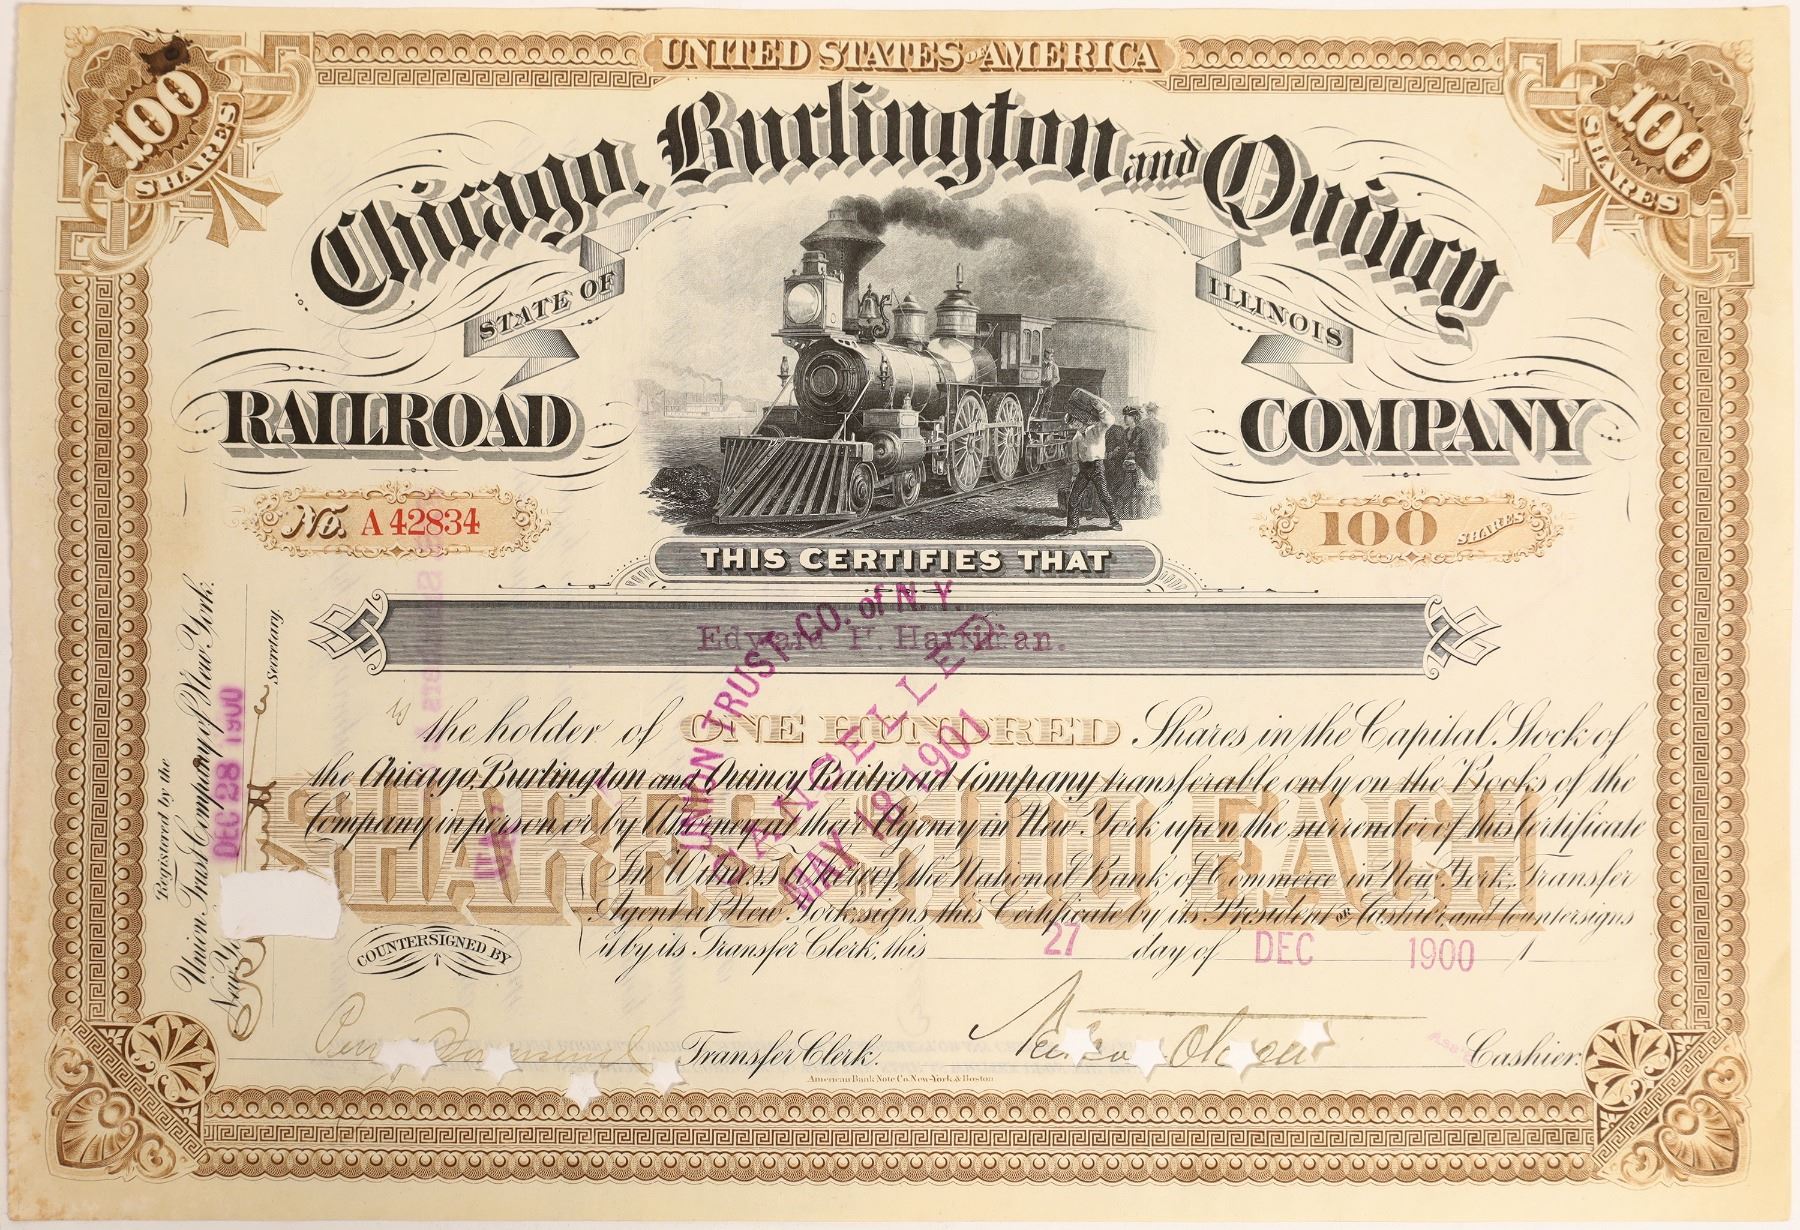 UNITED STATES OF AMERICA
100 SHARES
100 SHARES
Chicago, Burlington and Quincy
STATE OF ILLINOIS
RAILROAD COMPANY
No. A 42834
100 SHARES
THIS CERTIFIES THAT
Edward H. Harriman.
is the holder of ONE HUNDRED Shares in the Capital Stock of
the Chicago, Burlington and Quincy Railroad Company transferable only on the Books of the
Company in person or by Attorney at their Agency in New York upon the surrender of this Certificate
SHARES $100 EACH
In Witness Whereof, the National Bank of Commerce in New York, Transfer
Agent at New York, signs this Certificate by its President OR Cashier, and Countersigns
it by its Transfer Clerk, this 27 day of DEC 1900
COUNTERSIGNED BY
Transfer Clerk.
Cashier.
American Bank Note Co. New-York & Boston
Registered by the
Union Trust Company of New York.
New Y
DEC 28 1900
Secretary.
UNION TRUST CO. of N.Y.
CANCELLED
MAY 18 1901